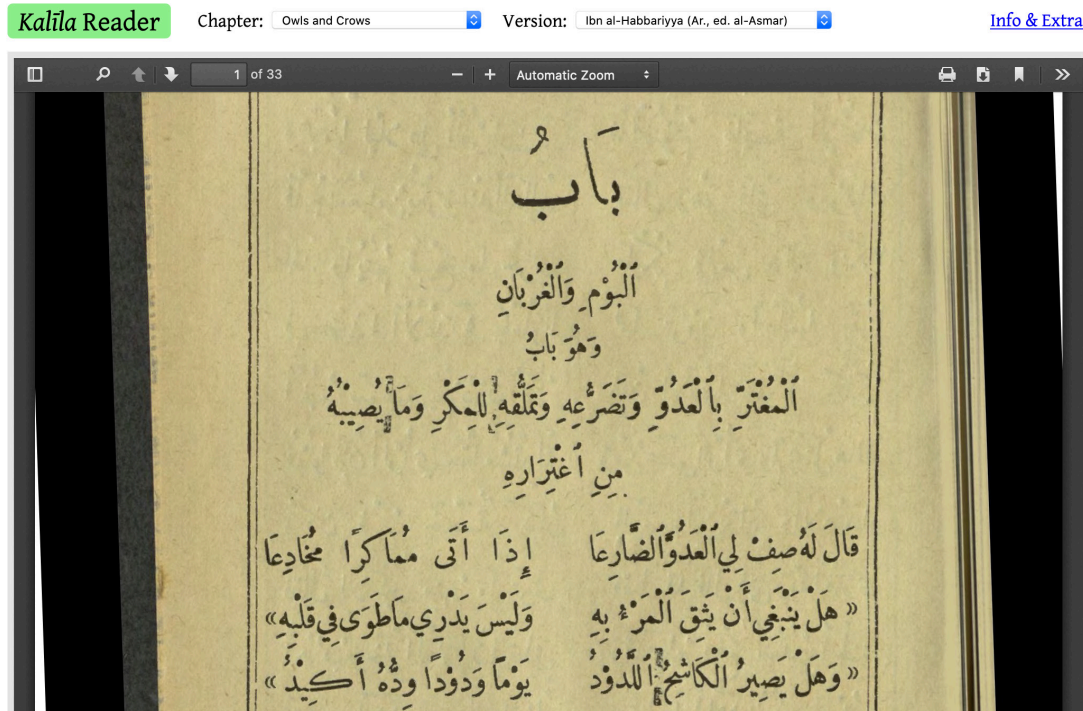 Kalīla Reader Chapter: Owls and Crows Version: Ibn al-Habbariyya (Ar., ed. al-Asmar) Info & Extra
1 of 33 Automatic Zoom
بَابُ
ٱلْبُوْمِ وَٱلْغُرْبَانِ
وَهُوَ بَابُ
ٱلْمُغْتَرِّ بِٱلْعَدُوِّ وَتَضَرُّعِهِ وَتَمَلُّقِهِ لِلْمَكْرِ وَمَا يُصِيْبُهُ
مِنِ ٱغْتِرَارِهِ
قَالَ لَهُ صِفْ لِي ٱلْعَدُوَّ ٱلضَّارِعَا إِذَا أَتَى مُمَاكِرًا مُخَادِعَا
« هَلْ يَنْبَغِي أَنْ يَثِقَ ٱلْمَرْءُ بِهِ وَلَيْسَ يَدْرِي مَا طَوَى فِي قَلْبِهِ»
« وَهَلْ يَصِيرُ ٱلْكَاشِحُ ٱللَّدُوْدُ يَوْمًا وَدُوْدًا وِدُّهُ أَكِيْدُ »